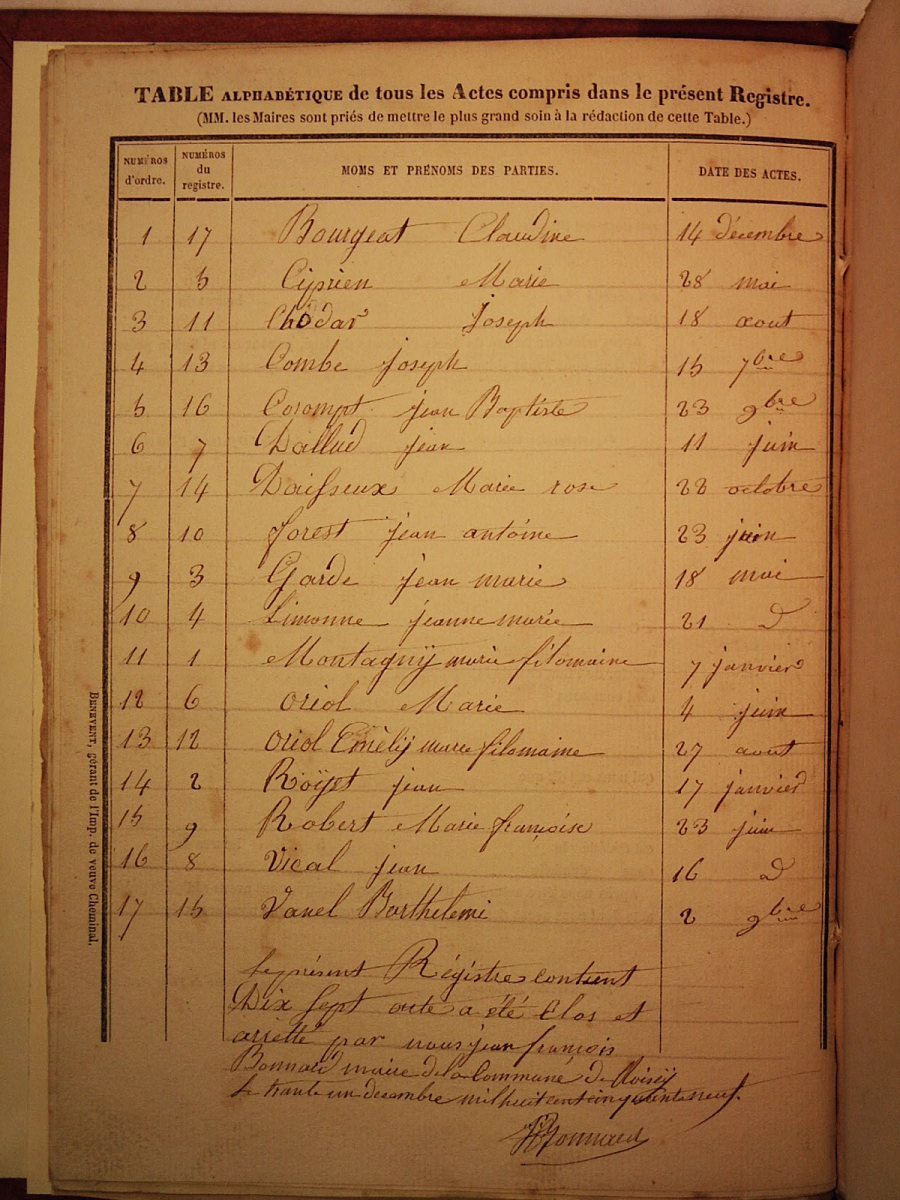 TABLE ALPHABÉTIQUE de tous les Actes compris dans le présent Registre.
(MM. les Maires sont priés de mettre le plus grand soin à la rédaction de cette Table.)
NUMÉROS d'ordre. NUMÉROS du registre. MOMS ET PRÉNOMS DES PARTIES. DATE DES ACTES.
1 17 Bourgeat Claudine 14 décembre
2 5 Ciprien Marie 28 mai
3 11 Chodar Joseph 18 aout
4 13 Combe joseph 15 7bre
5 16 Corompt jean Baptiste 23 9bre
6 7 Dallud jean 11 juin
7 14 Daisseux Marie rose 22 octobre
8 10 forest jean antoine 23 juin
9 3 Garde jean marie 18 mai
10 4 Limonne jeanne marie 21 d
11 1 Montagnÿ marie filomaine 7 janvier
12 6 oriol Marie 4 juin
13 12 oriol Emèlÿ marie filomaine 27 aout
14 2 Roÿet jean 17 janvier
15 9 Robert Marie françoise 23 juin
16 8 Vical jean 16 d
17 15 Vanel Barthelemi 2 9bre
Le présent Régistre contient
Dix Sept acte a été Clos et
arretté par nous jean françois
Bonnard maire de la Commune de Roisÿ
le trante un decembre mil huit cent cinquante neuf.
Bonnard
BENEVENT, gérant de l'Imp. de veuve Cheminal.